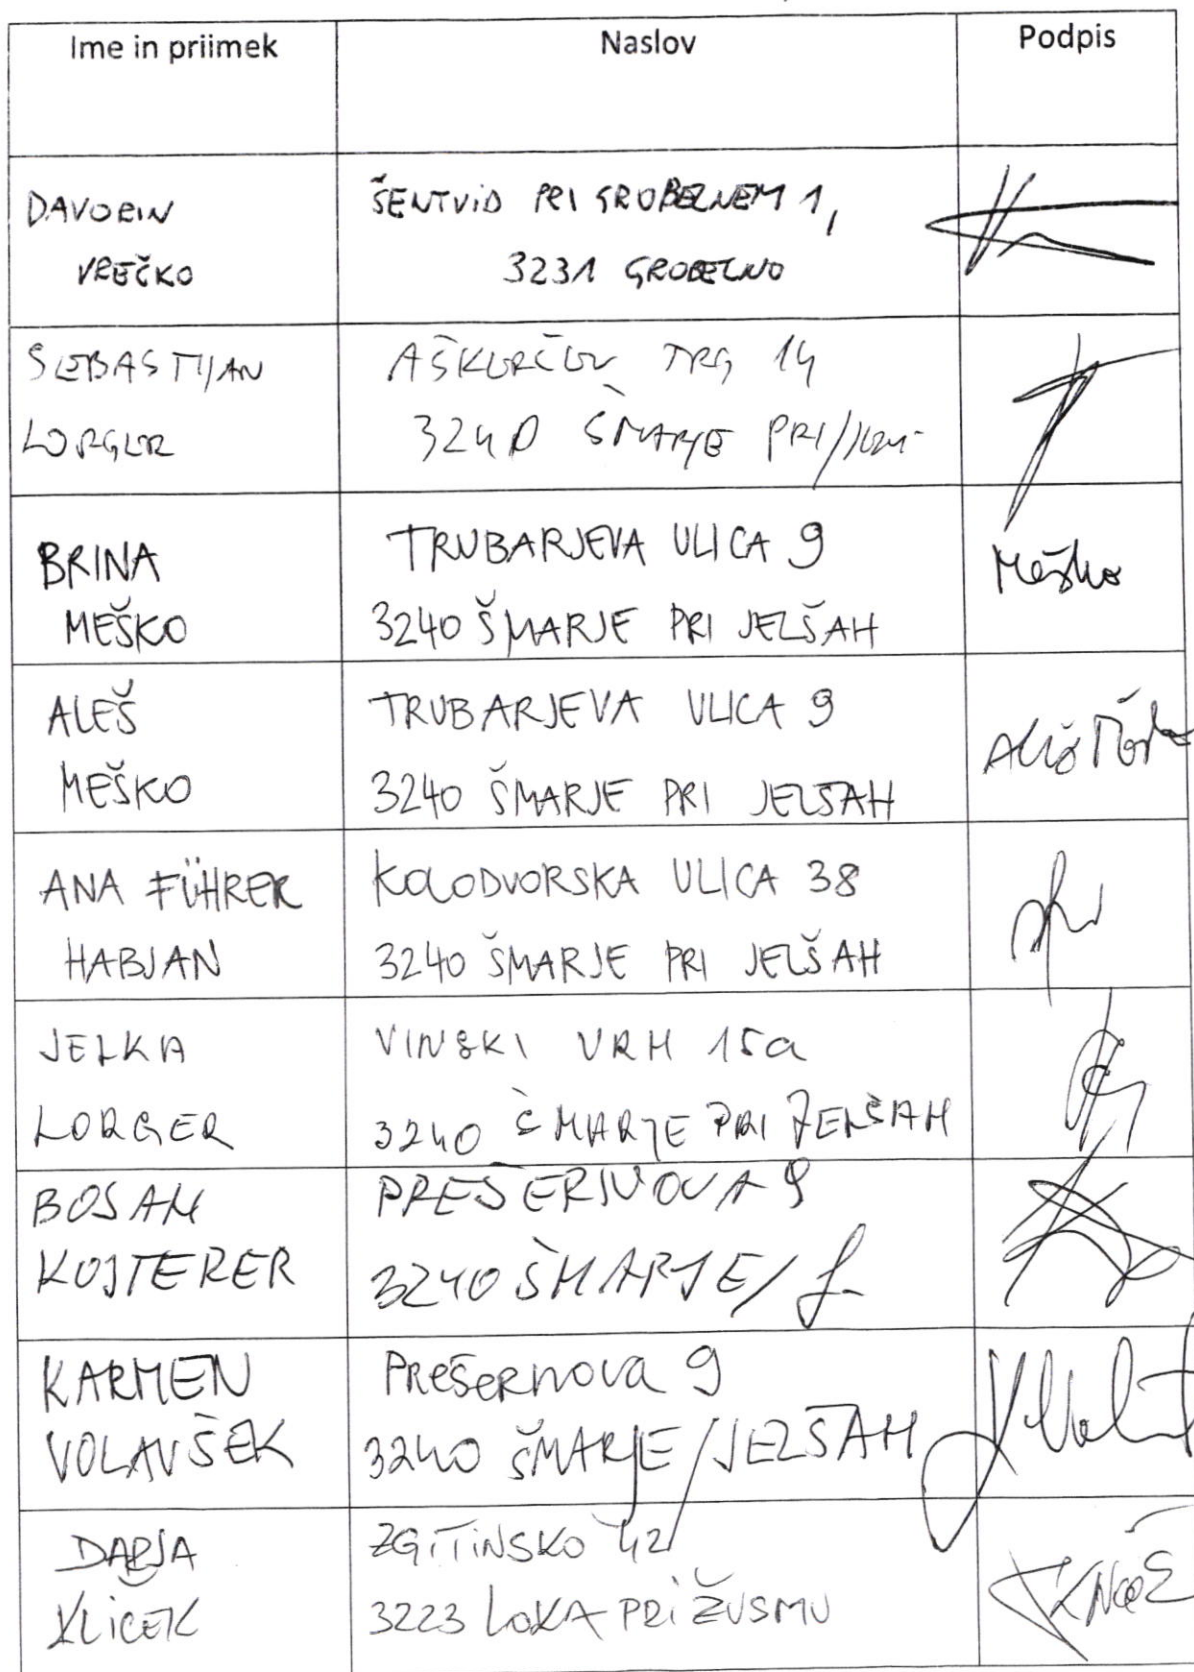 Ime in priimek
Naslov
Podpis
DAVORIN
VREČKO
ŠENTVID PRI GROBELNEM 1,
3231 GROBELNO
SEBASTIJAN
LORGER
AŠKERČEV TRG 14
3240 ŠMARJE PRI
BRINA
MEŠKO
TRUBARJEVA ULICA 9
3240 ŠMARJE PRI JELŠAH
Meško
ALEŠ
MEŠKO
TRUBARJEVA ULICA 9
3240 ŠMARJE PRI JELŠAH
Aleš
ANA FÜHRER
HABJAN
KOLODVORSKA ULICA 38
3240 ŠMARJE PRI JELŠAH
JELKA
LORGER
VINSKI VRH 15a
3240 ŠMARJE PRI JELŠAH
KOJTERER
PREŠERNOVA 9
3240 ŠMARJE/J.
KARMEN
VOLAVŠEK
PREŠERNOVA 9
3240 ŠMARJE/JELŠAH
DARJA
KLIČEK
42
3223 LOKA PRI ŽUSMU